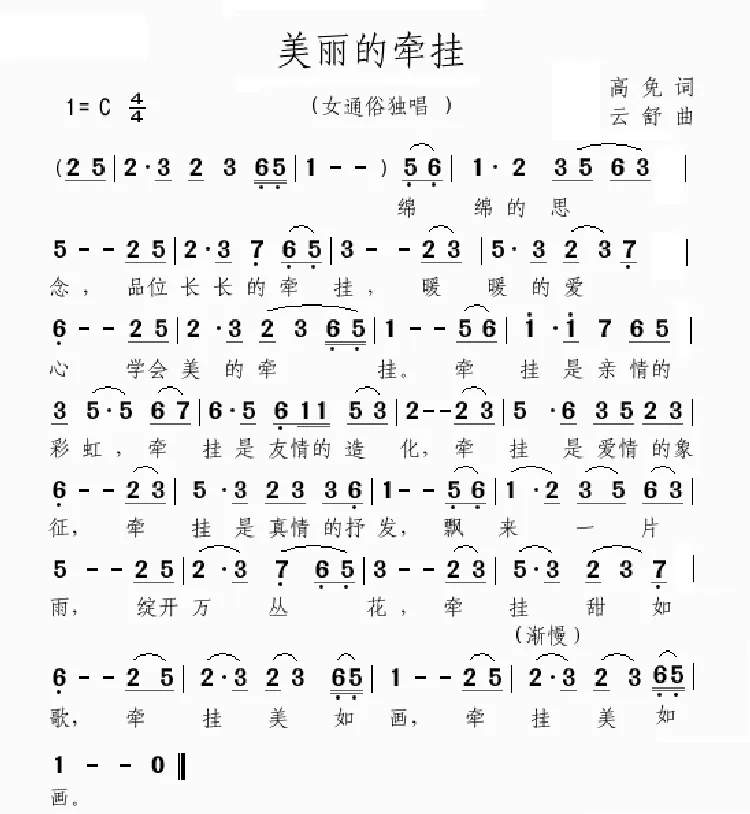 美丽的牵挂
1= C 4/4 （女通俗独唱 ） 高 免 词
云 舒 曲
(2 5 | 2 · 3 2 3 6 5 | 1 - - ) 5 6 | 1 · 2 3 5 6 3 |
绵 绵 的 思
5 - - 2 5 | 2 · 3 7 6 5 | 3 - - 2 3 | 5 · 3 2 3 7 |
念， 品位 长 长 的 牵 挂， 暖 暖 的 爱
6 - - 2 5 | 2 · 3 2 3 6 5 | 1 - - 5 6 | 1 · 1 7 6 5 |
心 学会 美 的 牵 挂。 牵 挂 是 亲 情 的
3 5 · 5 6 7 | 6 · 5 6 11 5 3 | 2 - - 2 3 | 5 · 6 3 5 2 3 |
彩 虹， 牵 挂 是 友 情 的 造 化， 牵 挂 是 爱 情 的 象
6 - - 2 3 | 5 · 3 2 3 3 6 | 1 - - 5 6 | 1 · 2 3 5 6 3 |
征， 牵 挂 是 真 情 的 抒 发， 飘 来 一 片
5 - - 2 5 | 2 · 3 7 6 5 | 3 - - 2 3 | 5 · 3 2 3 7 |
雨， 绽开 万 丛 花， 牵 挂 甜 如
（渐慢）
6 - - 2 5 | 2 · 3 2 3 6 5 | 1 - - 2 5 | 2 · 3 2 3 6 5 |
歌， 牵 挂 美 如 画， 牵 挂 美 如
1 - - 0 ‖
画。